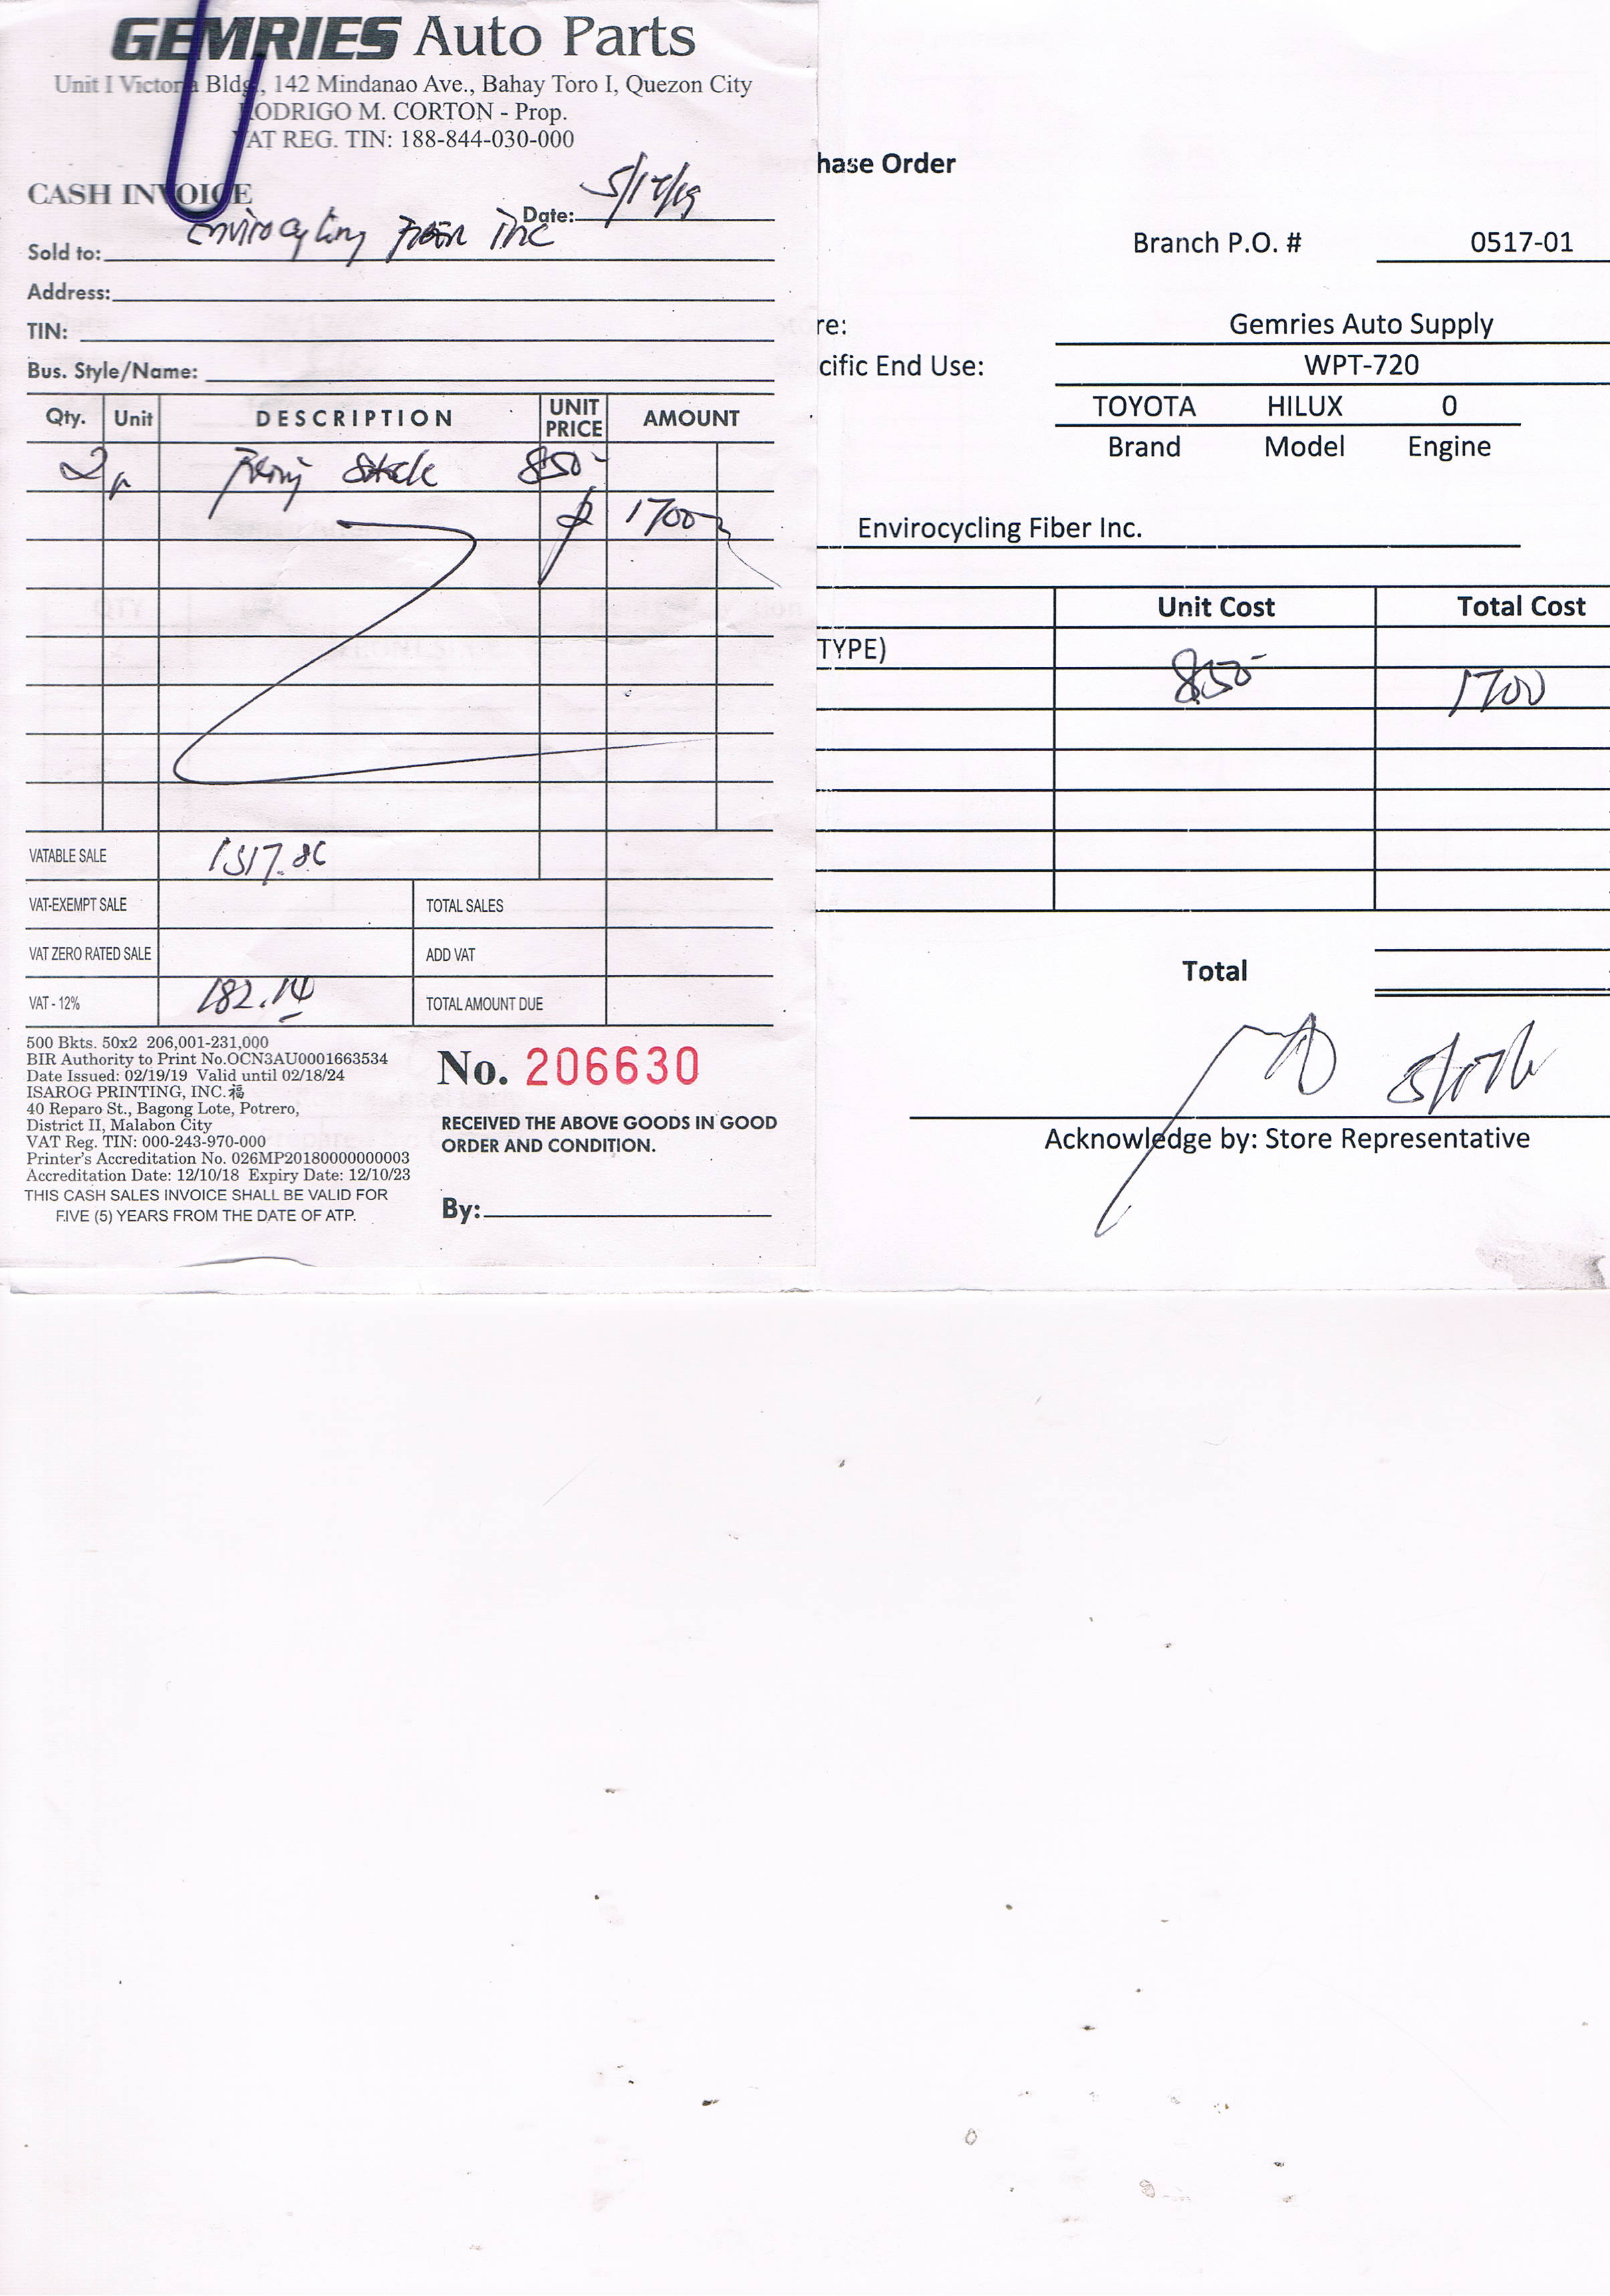 GEMRIES Auto Parts
Unit I Victoria Bldg., 142 Mindanao Ave., Bahay Toro I, Quezon City
RODRIGO M. CORTON - Prop.
VAT REG. TIN: 188-844-030-000
CASH INVOICE
Date: 5/17/19
Sold to: Envirocycling Fiber Inc
Address:
TIN:
Bus. Style/Name:
Qty. Unit DESCRIPTION UNIT PRICE AMOUNT
2 850-
1700
VATABLE SALE 1517.86
VAT-EXEMPT SALE TOTAL SALES
VAT ZERO RATED SALE ADD VAT
VAT - 12% 182.14 TOTAL AMOUNT DUE
500 Bkts. 50x2 206,001-231,000
BIR Authority to Print No.OCN3AU0001663534
Date Issued: 02/19/19 Valid until 02/18/24
ISAROG PRINTING, INC.福
40 Reparo St., Bagong Lote, Potrero,
District II, Malabon City
VAT Reg. TIN: 000-243-970-000
Printer's Accreditation No. 026MP20180000000003
Accreditation Date: 12/10/18 Expiry Date: 12/10/23
THIS CASH SALES INVOICE SHALL BE VALID FOR
FIVE (5) YEARS FROM THE DATE OF ATP.
No. 206630
RECEIVED THE ABOVE GOODS IN GOOD
ORDER AND CONDITION.
By:
hase Order
Branch P.O. # 0517-01
re: Gemries Auto Supply
cific End Use: WPT-720
TOYOTA HILUX 0
Brand Model Engine
Envirocycling Fiber Inc.
Unit Cost Total Cost
TYPE)
850- 1700
Total
Acknowledge by: Store Representative